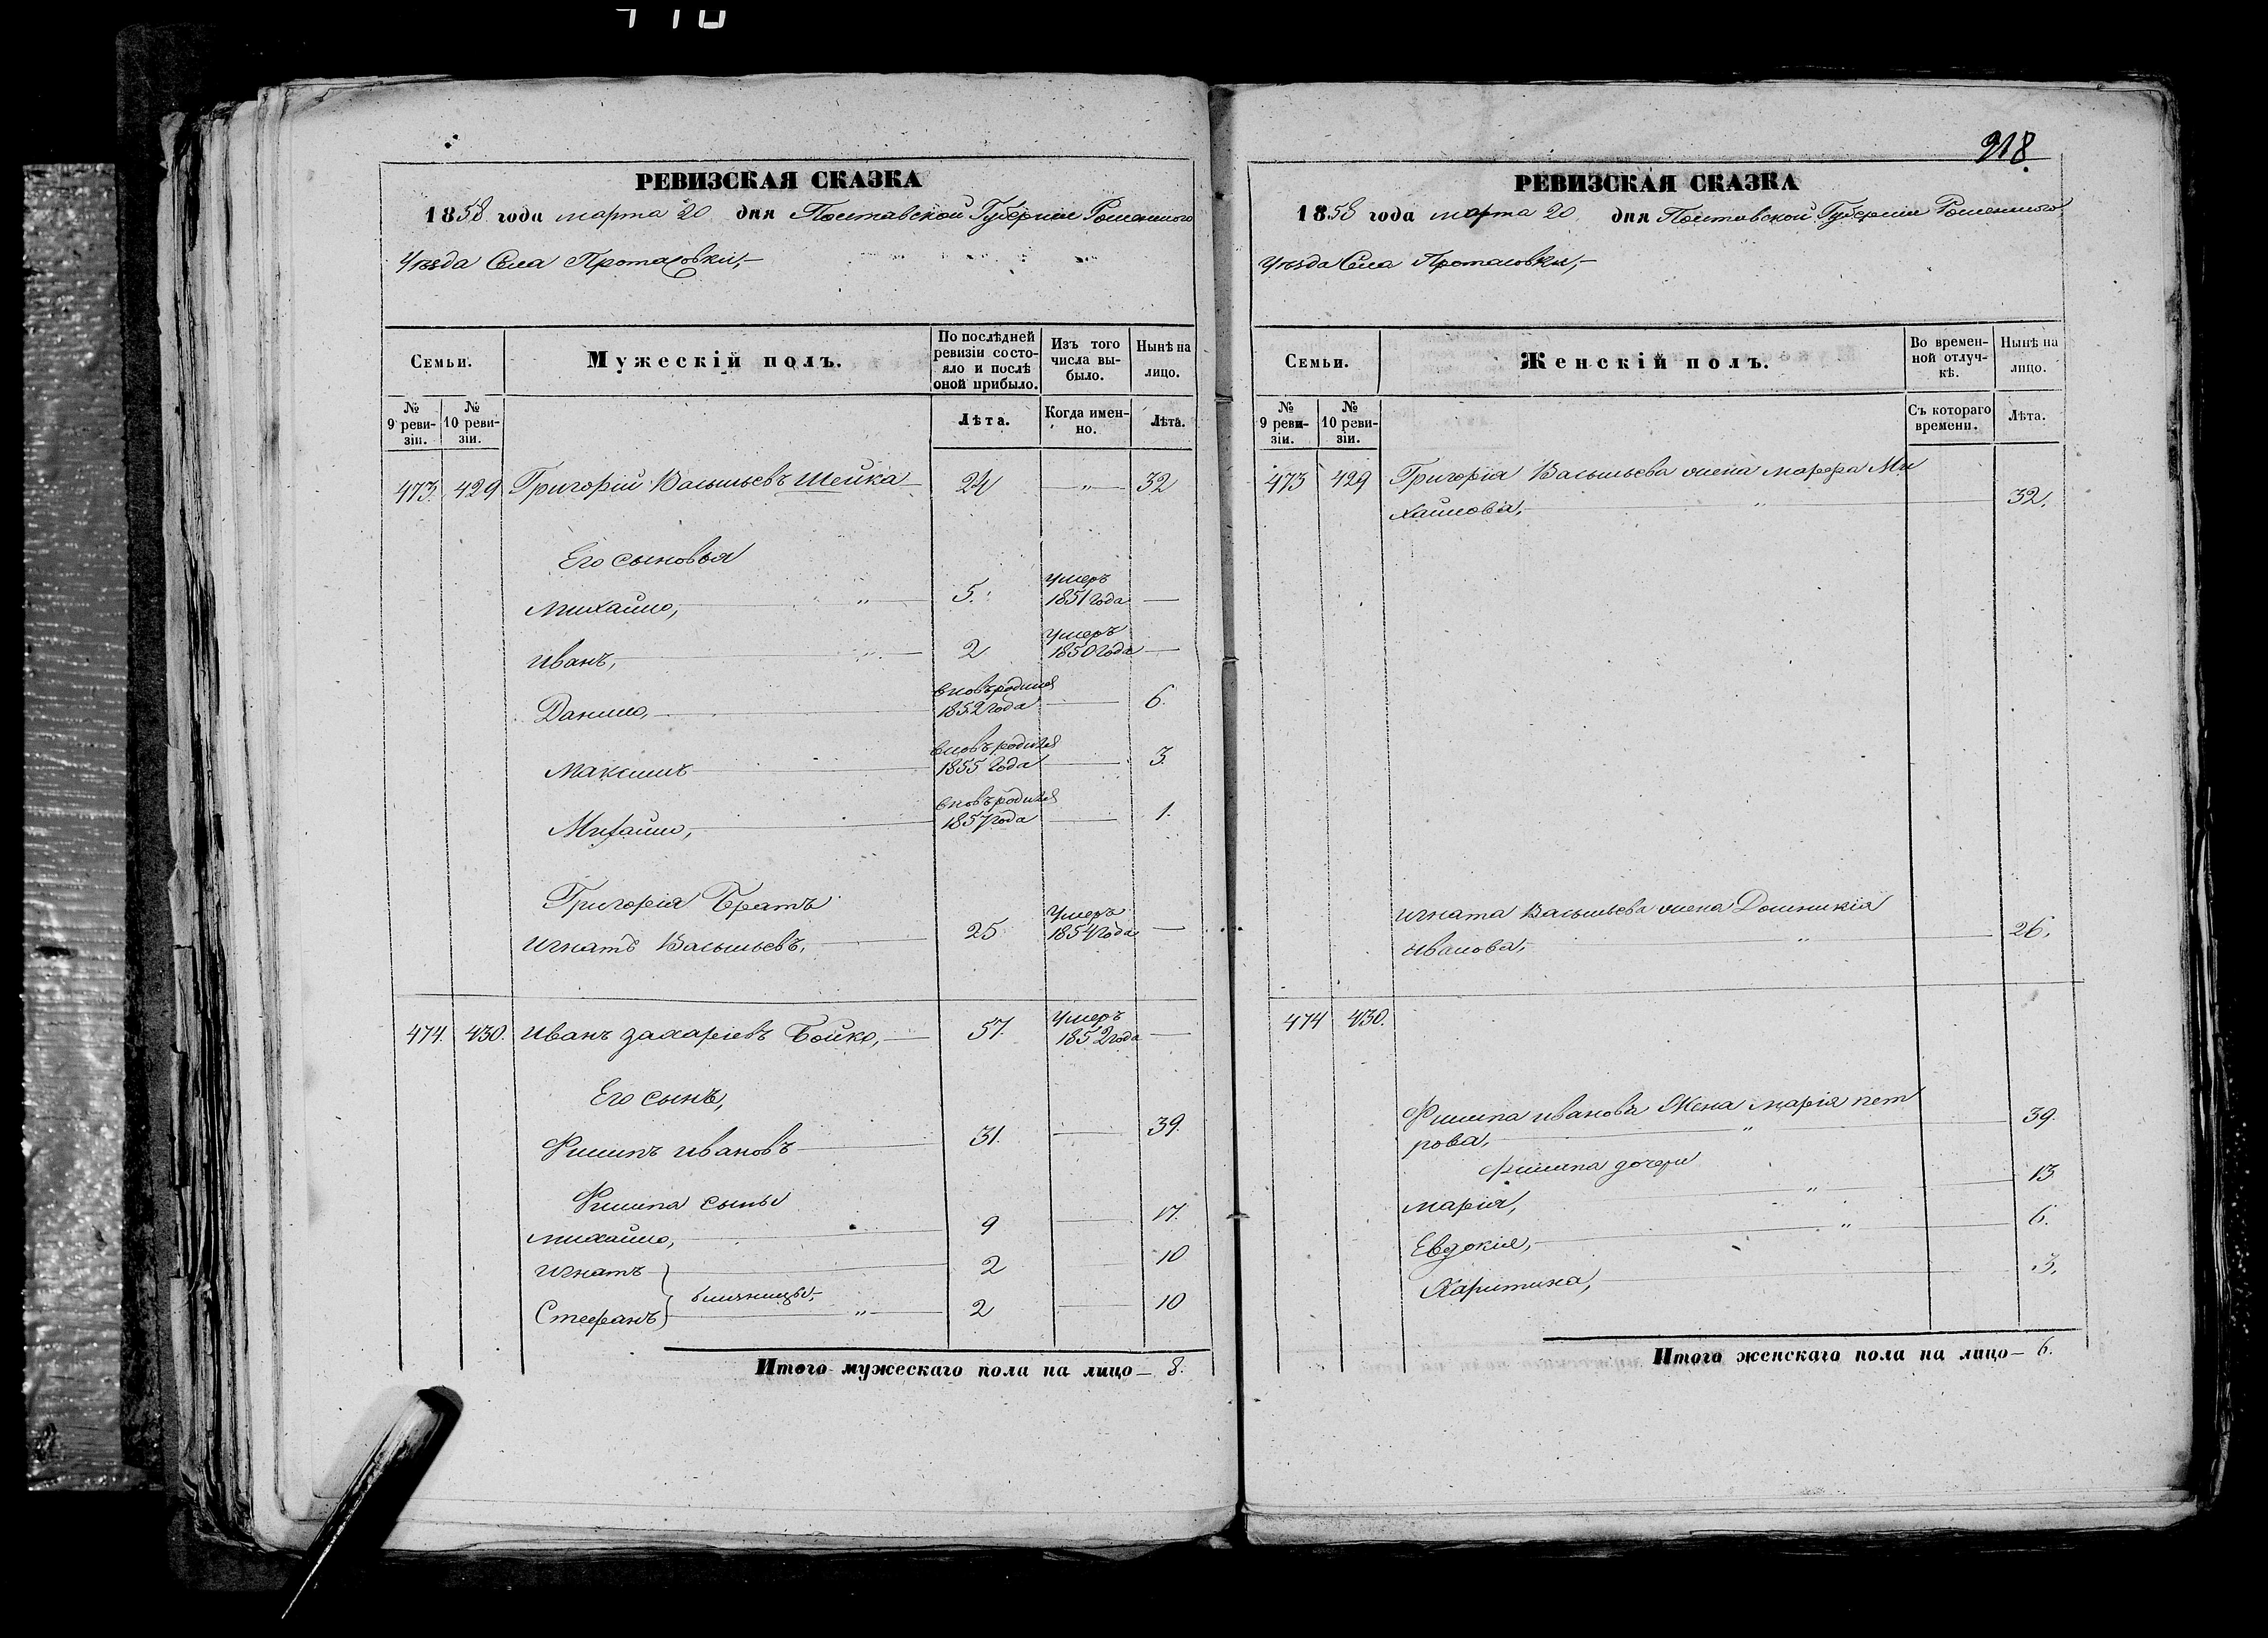 410
РЕВИЗСКАЯ СКАЗКА
1858 года марта 20 дня Полтавской Губернии Роменского
Уѣзда Села Протасовки,
Семьи.
Мужескій полъ.
По послѣдней ревизіи состояло и послѣ оной прибыло.
Изъ того числа выбыло.
Нынѣ на лицо.
№ 9 ревизіи.
№ 10 ревизіи.
Лѣта.
Когда именно.
Лѣта.
473. 429 Григорій Васильевъ Шейка 24 " 32
Его сыновья
Михайло, " 5. умеръ 1851 года
Иванъ, " 2 умеръ 1850 года
Данило, вновь родился 1852 года 6.
Максимъ вновь родился 1855 года 3.
Михайло, вновь родился 1857 года 1.
Григорія Братъ
Игнатъ Васильевъ, 25 Умеръ 1854 года
474. 430. Иванъ Захаріевъ Бойко, 57. Умеръ 1852 года
Его сынъ,
Филипъ Ивановъ 31. 39.
Филипа сыны
Михайло, 9 17.
Игнатъ 2 10
Стефанъ близницы, " 2 10
Итого мужескаго пола на лицо — 8.
218
РЕВИЗСКАЯ СКАЗКА
1858 года марта 20 дня Полтавской Губернии Роменского
Уѣзда Села Протасовки,
Семьи.
Женскій полъ.
Во временной отлучкѣ.
Нынѣ на лицо.
№ 9 ревизіи.
№ 10 ревизіи.
Съ котораго времени.
Лѣта.
473 429 Григорія Васильева жена Марфа Ми
хайлова, " 32.
Игната Васильева жена Домникія
Иванова, " 26.
474 430.
Филипа Иванова Жена Марія Пет
рова, " 39.
Филипа дочери
Марія, " 13
Евдокія, " 6.
Харитина, 3.
Итого женскаго пола на лицо — 6.